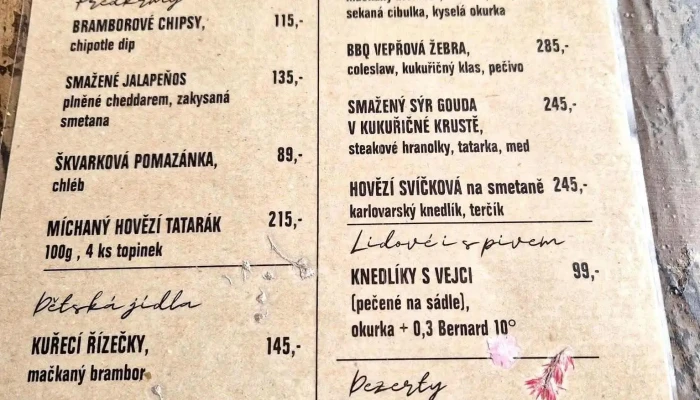 Předkrmy
BRAMBOROVÉ CHIPSY, 115,-
chipotle dip
SMAŽENÉ JALAPEŇOS 135,-
plněné cheddarem, zakysaná
smetana
ŠKVARKOVÁ POMAZÁNKA, 89,-
chléb
MÍCHANÝ HOVĚZÍ TATARÁK 215,-
100g , 4 ks topinek
Dětská jídla
KUŘECÍ ŘÍZEČKY, 145,-
mačkaný brambor
sekaná cibulka, kyselá okurka
BBQ VEPŘOVÁ ŽEBRA, 285,-
coleslaw, kukuřičný klas, pečivo
SMAŽENÝ SÝR GOUDA 245,-
V KUKUŘIČNÉ KRUSTĚ,
steakové hranolky, tatarka, med
HOVĚZÍ SVÍČKOVÁ na smetaně 245,-
karlovarský knedlík, terčík
Lidově i s pivem
KNEDLÍKY S VEJCI 99,-
(pečené na sádle),
okurka + 0,3 Bernard 10°
Dezerty